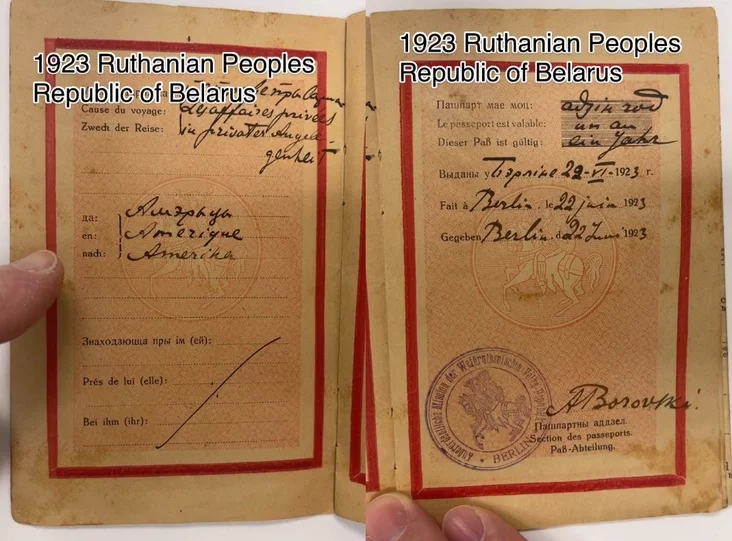 1923 Ruthanian Peoples
Republic of Belarus
Cause du voyage: Les affaires privées
Zweck der Reise: in privater Angele
genheit
да: Амэрыцы
en: Amérique
nach: Amerika
Знаходзяцца пры ім (ей):
Prés de lui (elle):
Bei ihm (ihr):
1923 Ruthanian Peoples
Republic of Belarus
Пашпарт мае моц: адзін год
Le passeport est valable: un an
Dieser Paß ist gültig: ein Jahr
Выданы у Бэрліне 22-VI-1923 г.
Fait à Berlin, le 22 juin 1923
Gegeben Berlin, d. 22 Juni 1923
Mission der Weißruthenischen
BERLIN
A Borovski.
Пашпартны аддзел.
Section des passeports.
Paß-Abteilung.